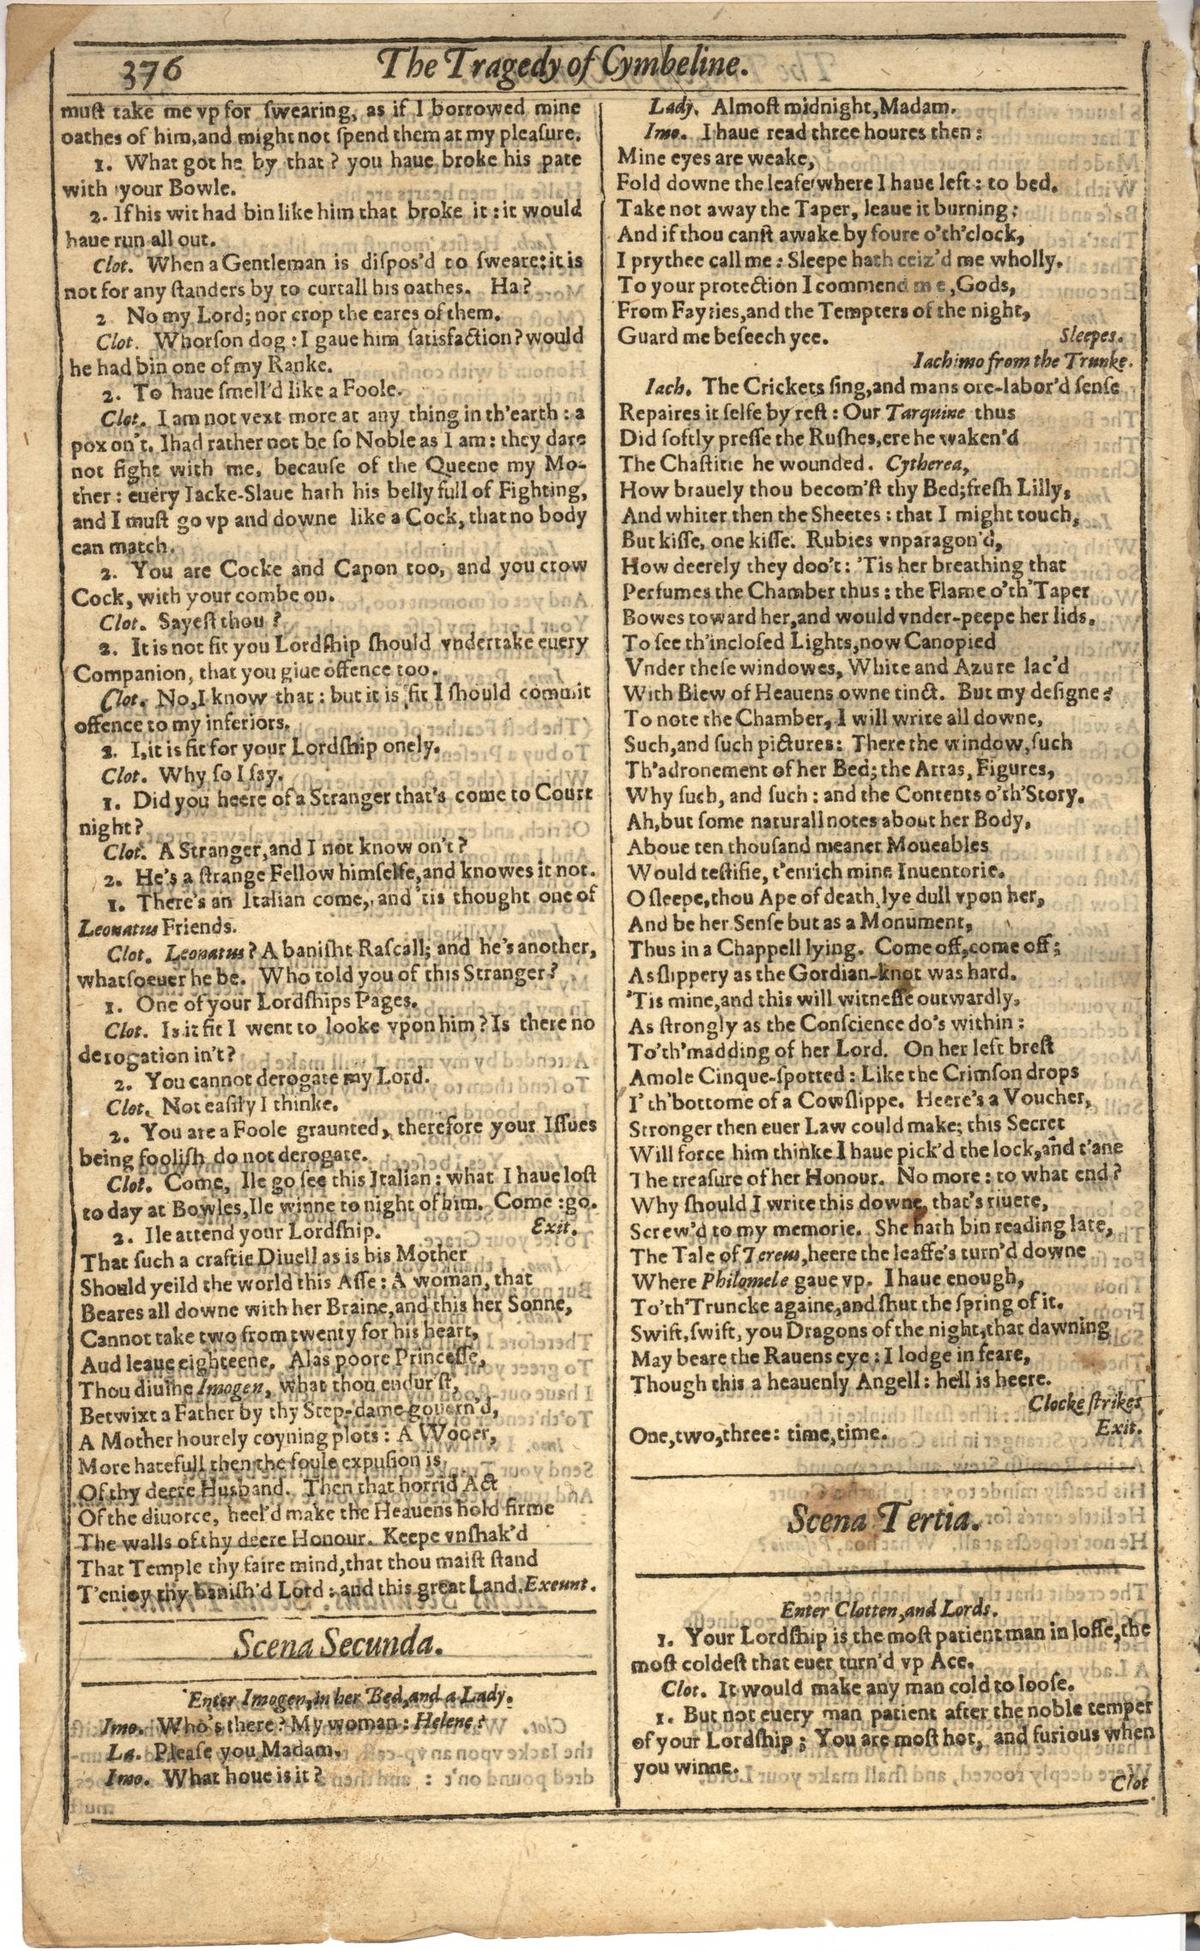 376
The Tragedy of Cymbeline.
muſt take me vp for ſwearing, as if I borrowed mine
oathes of him, and might not ſpend them at my pleaſure.
1. What got he by that? you haue broke his pate
with your Bowle.
2. If his wit had bin like him that broke it: it would
haue run all out.
Clot. When a Gentleman is diſpos'd to ſweare: it is
not for any ſtanders by to curtall his oathes. Ha?
2 No my Lord; nor crop the eares of them.
Clot. Whorſon dog: I gaue him ſatisfaction? would
he had bin one of my Ranke.
2. To haue ſmell'd like a Foole.
Clot. I am not vext more at any thing in th'earth: a
pox on't. I had rather not be ſo Noble as I am: they dare
not fight with me, becauſe of the Queene my Mo-
ther: euery Iacke-Slaue hath his belly full of Fighting,
and I muſt go vp and downe like a Cock, that no body
can match.
2. You are Cocke and Capon too, and you crow
Cock, with your combe on.
Clot. Sayeſt thou?
2. It is not fit you Lordſhip ſhould vndertake euery
Companion, that you giue offence too.
Clot. No, I know that: but it is fit I ſhould commit
offence to my inferiors.
2. I, it is fit for your Lordſhip onely.
Clot. Why ſo I ſay.
1. Did you heere of a Stranger that's come to Court
night?
Clot. A Stranger, and I not know on't?
2. He's a ſtrange Fellow himſelfe, and knowes it not.
1. There's an Italian come, and 'tis thought one of
Leonatus Friends.
Clot. Leonatus? A baniſht Raſcall; and he's another,
whatſoeuer he be. Who told you of this Stranger?
1. One of your Lordſhips Pages.
Clot. Is it fit I went to looke vpon him? Is there no
derogation in't?
2. You cannot derogate my Lord.
Clot. Not eaſily I thinke.
2. You are a Foole graunted, therefore your Iſſues
being fooliſh do not derogate.
Clot. Come, Ile go ſee this Italian: what I haue loſt
to day at Bowles, Ile winne to night of him. Come: go.
2. Ile attend your Lordſhip. Exit.
That ſuch a craftie Diuell as is his Mother
Should yeild the world this Aſſe: A woman, that
Beares all downe with her Braine, and this her Sonne,
Cannot take two from twenty for his heart,
And leaue eighteene. Alas poore Princeſſe,
Thou diuine Imogen, what thou endur'ſt,
Betwixt a Father by thy Step-dame gouern'd,
A Mother hourely coyning plots: A Wooer,
More hatefull then the foule expulſion is
Of thy deere Husband. Then that horrid Act
Of the diuorce, heel'd make the Heauens hold firme
The walls of thy deere Honour. Keepe vnſhak'd
That Temple thy faire mind, that thou maiſt ſtand
T'enioy thy baniſh'd Lord: and this great Land. Exeunt.
Scena Secunda.
Enter Imogen, in her Bed, and a Lady.
Imo. Who's there? My woman: Helene?
La. Pleaſe you Madam.
Imo. What houe is it?
Lady. Almoſt midnight, Madam.
Imo. I haue read three houres then:
Mine eyes are weake,
Fold downe the leafe where I haue left: to bed.
Take not away the Taper, leaue it burning:
And if thou canſt awake by foure o'th'clock,
I prythee call me: Sleepe hath ceiz'd me wholly.
To your protection I commend me, Gods,
From Fayries, and the Tempters of the night,
Guard me beſeech yee. Sleepes.
Iachimo from the Trunke.
Iach. The Crickets ſing, and mans ore-labor'd ſenſe
Repaires it ſelfe by reſt: Our Tarquine thus
Did ſoftly preſſe the Ruſhes, ere he waken'd
The Chaſtitie he wounded. Cytherea,
How brauely thou becom'ſt thy Bed; freſh Lilly,
And whiter then the Sheetes: that I might touch,
But kiſſe, one kiſſe. Rubies vnparagon'd,
How deerely they doo't: 'Tis her breathing that
Perfumes the Chamber thus: the Flame o'th'Taper
Bowes toward her, and would vnder-peepe her lids.
To ſee th'incloſed Lights, now Canopied
Vnder theſe windowes, White and Azure lac'd
With Blew of Heauens owne tinct. But my deſigne?
To note the Chamber, I will write all downe,
Such, and ſuch pictures: There the window, ſuch
Th'adronement of her Bed; the Arras, Figures,
Why ſuch, and ſuch: and the Contents o'th'Story.
Ah, but ſome naturall notes about her Body,
Aboue ten thouſand meaner Moueables
Would teſtifie, t'enrich mine Inuentorie.
O ſleepe, thou Ape of death, lye dull vpon her,
And be her Senſe but as a Monument,
Thus in a Chappell lying. Come off, come off;
As ſlippery as the Gordian-knot was hard.
'Tis mine, and this will witneſſe outwardly,
As ſtrongly as the Conſcience do's within:
To'th'madding of her Lord. On her left breſt
A mole Cinque-ſpotted: Like the Crimſon drops
I'th'bottome of a Cowſlippe. Heere's a Voucher,
Stronger then euer Law could make; this Secret
Will force him thinke I haue pick'd the lock, and t'ane
The treaſure of her Honour. No more: to what end?
Why ſhould I write this downe, that's riuete,
Screw'd to my memorie. She hath bin reading late,
The Tale of Tereus, heere the leaffe's turn'd downe
Where Philomele gaue vp. I haue enough,
To'th'Truncke againe, and ſhut the ſpring of it.
Swift, ſwift, you Dragons of the night, that dawning
May beare the Rauens eye: I lodge in feare,
Though this a heauenly Angell: hell is heere.
Clocke ſtrikes
One, two, three: time, time. Exit.
Scena Tertia.
Enter Clotten, and Lords.
1. Your Lordſhip is the moſt patient man in loſſe, the
moſt coldeſt that euer turn'd vp Ace.
Clot. It would make any man cold to looſe.
1. But not euery man patient after the noble temper
of your Lordſhip; You are moſt hot, and furious when
you winne.
Clot